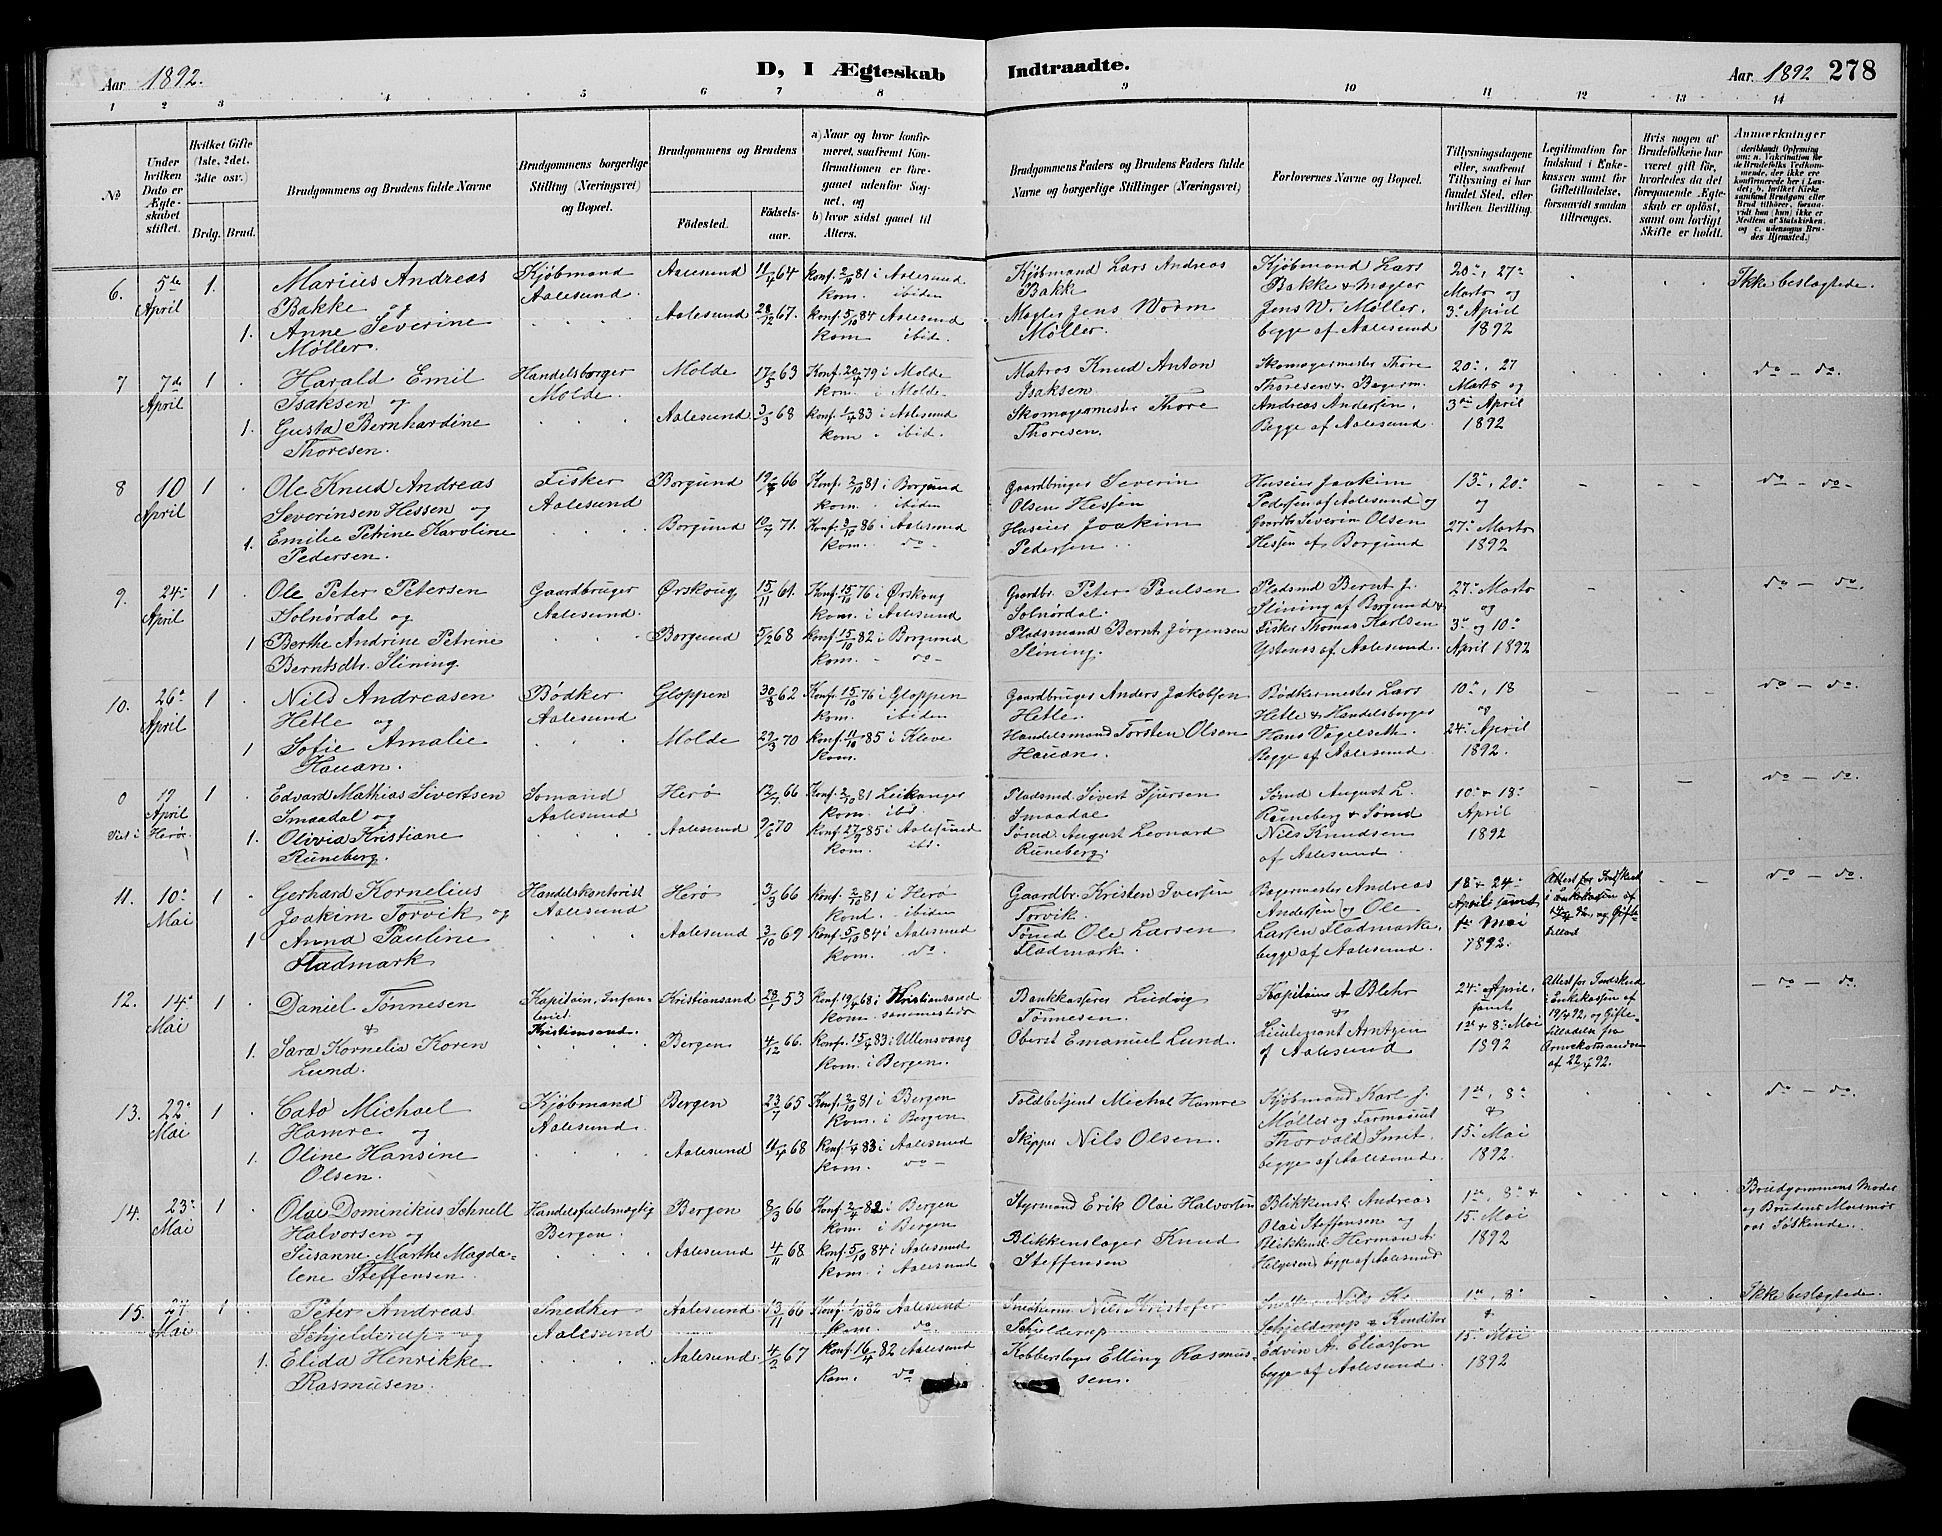 Aar 1892.
D, I Ægteskab Indtraadte.
Aar. 1892 278
1 2 3 4 5 6 7 8 9 10 11 12 13 14
No
Under hvilken Dato er Ægteskabet stiftet.
Hvilket Gifte (1ste, 2det, 3die osv.)
Brdg. Brud.
Brudgommens og Brudens fulde Navne
Brudgommens borgerlige Stilling (Næringsvei) og Bopæl.
Brudgommens og Brudens
Fødested. Fødselsaar.
a) Naar og hvor konfirmeret, saafremt Konfirmationen er foregaaet udenfor Sognet, og
b) hvor sidst gaaet til Alters.
Brudgommens Faders og Brudens Faders fulde Navne og borgerlige Stillinger (Næringsvei)
Forlovernes Navne og Bopæl.
Tillysningsdagene eller, saafremt Tillysning ei har fundet Sted, efter hvilken Bevilling.
Legitimation for Indskud i Enkekassen samt for Giftetilladelse, forsaavidt saadan tiltrænges.
Hvis nogen af Brudefolkene har været gift før, hvorledes da det foregaaende Ægteskab er opløst, samt om lovligt Skifte er holdt.
Anmærkninger (deriblandt Oplysning om: a. Vakcination for de Brudefolks Vedkommende, der ikke ere konfirmerede her i Landet; b. hvilket Kirkesamfund Brudgom eller Brud tilhører, forsaavidt han (hun) ikke er Medlem af Statskirken, og c. udensogns Brudes Hjemsted.)
6. 5te April 1. Marius Andreas Kjøbmand Aalesund 11/4 64 Konf. 2/10 81 i Aalesund Kjøbmand Lars Andreas Kjøbmand Lars 20de, 27de Ikke beslagtede.
Bakke og Aalesund. kom. ibiden Bakke Bakke & Mægler Marts og
1. Anne Severine Aalesund 28/12 67. konf. 5/10 84 Aalesund Mægler Jens Worm Jens W. Møller. 3die April
Møller. kom ibid. Møller. begge af Aalesund 1892
7 7de April 1 Harald Emil Handelsborger Molde 17/5 63 Konf. 20/4 79 i Molde Matros Knud Anton Skomagermester Thore 20de, 27 do - do.
Isaksen og Molde. kom. i Molde Isaksen Thoresen & Bagerm. Marts og
1. Gusta Bernhardine Aalesund 3/3 68 konf. 1/4 83 i Aalesund Skomagermester Thore Andreas Andersen. 3die April
Thoresen. kom. ibid. Thoresen. Begge af Aalesund. 1892
8 10 April 1 Ole Knud Andreas Fisker Borgund 66 Konf. 2/10 81 i Borgund Gaardbruger Severin Huseier Joakim 13de, 20de do - do.
Severinsen Hessen og Aalesund kom. ibiden Olsen Hessen Pedersen af Aalesund og og
1. Emilie Petrine Karoline Borgund 71. Konf. 3/10 86 i Aalesund Huseier Joakim Gaardbr. Severin Olsen 27de Marts
Pedersen. kom. do Pedersen. Hessen af Borgund 1892
9. 24de April 1 Ole Peter Petersen Gaardbruger Ørskoug 15/11 61. Konf. 15/10 76 i Ørskoug Gaardbr. Peter Paulsen Pladsmd Bernt J. 27de Marts do - do
Solnørdal og Aalesund. kom. i Aalesund Solnørdal. Slining af Borgund & og
1 Berthe Andrine Petrine Borgund 5/2 68 konf. 15/10 82 i Borgund Pladsmand Bernt Jörgensen Fisker Thomas Karlsen 3die og 10de
Berntsdtr. Slining. kom. - do - Slining. Ystenes af Aalesund. April 1892
10. 26de April 1 Nils Andreasen Bødker Gloppen 30/8 62 Konf. 15/10 76 i Gloppen Gaardbruger Anders Jakobsen Bødkermester Lars 10de, 18 do - do.
Hetle og Aalesund kom. ibiden Hetle. Hetle & Handelsborger og
1 Sofie Amalie Molde 29/3 70 konf. 11/10 85 i Kleve Handelsmand Torsten Olsen Hans Vagelseth. 24de April
Hauan. kom. Hauan. Begge af Aalesund 1892.
0 19 April 1 Edvard Mathias Sivertsen Sømand Herø 12/7 66 Konf. 2/10 81 Leikanger Pladsmd. Sivert Sjursen Sømd August L. 10de & 18de do - do.
Smaadal og Aalesund kom. ibd Smaadal Runeberg & Sømd April
Viet i Herø 1. Olivia Kristiane Aalesund 9/6 70 konf. 27/9 85 i Aalesund Sømd. August Leonard Nils Knudsen 1892
Runeberg. kom. ibd. Runeberg. af Aalesund
11. 10de Mai 1 Gerhard Kornelius Handelskontorist Herø 3/3 66 Konf. 2/10 81 i Herø Gaardbr. Kristen Iversen Bagermester Andreas 18 & 24de Attest for Indskud do - do.
Joakim Torvik og Aalesund kom. ibiden Torvik. Andersen og Ole April samt i Enkekassen af
1 Anna Pauline Aalesund 3/10 69 konf. 5/10 84 i Aalesund Sømd Ole Larsen Larsen Fladmark. 1ste Mai 92, og Gifte-
Fladmark kom. do. Fladmark. begge af Aalesund. 1892.
12. 14de Mai 1 Daniel Tønnesen Kapitain, Infanteriet. Kristiansand 28/1 53 Konf. 19/4 68 i Kristiansand Bankkasserer Ludvig Kapitaine A. Blehr 24de April, Attest for Indskud - do - do.
& Kristiansand. kom. sammesteds Tønnesen. & samt i Enkekassen af
1. Sara Kornelia Koren Bergen 4/12 66. konf. 15/4 83 i Ullensvang Oberst Emanuel Lund. Lieutenant Arntzen 1ste & 8de Mai 19/4 92, og Gifte-
Lund. kom. i Bergen. af Aalesund 1892 tilladelse fra
Armekomandoen af 22/4 92.
13. 22de Mai 1 Cato Michael Kjøbmand Bergen 23/7 65 Konf. 2/10 81 i Bergen Toldbetjent Michal Hamre Kjøbmand Karl J. 1ste, 8de do - do.
Hamre og Aalesund. kom. i Bergen Møller og Farmaceut &
1. Oline Hansine Aalesund 11/4 68 konf. 1/4 83 i Aalesund Skipper Nils Olsen. Thorvald Smit. 15de Mai
Olsen. kom. do - begge af Aalesund. 1892.
14. 23de Mai 1 Olai Dominikus Schnell Handelsfuldmægtig Bergen 8/3 66 Konf. 2/4 82 i Bergen Styrmand Erik Olai Halvorsen Blikkensl. Andreas 1ste, 8de & Brudgommens Moder
Halvorsen og Bergen. kom. i Bergen Olai Steffensen og 15. Mai og Brudens Mormor
Susanne Marthe Magda- Aalesund 4/11 68 konf. 5/10 84 i Aalesund Blikkenslager Knud Blikkensl. Herman A. 1892 var Søskende.
lene Steffensen. kom. i Aalesund Steffensen Helgesen, begge af Aalesund
15. 24 Mai 1 Peter Andreas Snedker Aalesund 13/11 66 Konf. 1/10 82 Aalesund Snedkerm. Nils Kristofer Snedker Nils Kr. 1ste, 8de Ikke beslagtede.
Schjelderup og Aalesund kom. do Schjelderup Schjelderup & Konditor &
1. Elida Henrikke Aalesund. 4/2 67 konf. 16/4 82 Aalesund Kobberslager Elling Rasmus- Edvin A. Eliassen 15de Mai
Rasmusen. Kom. do sen. begge af Aalesund. 1892